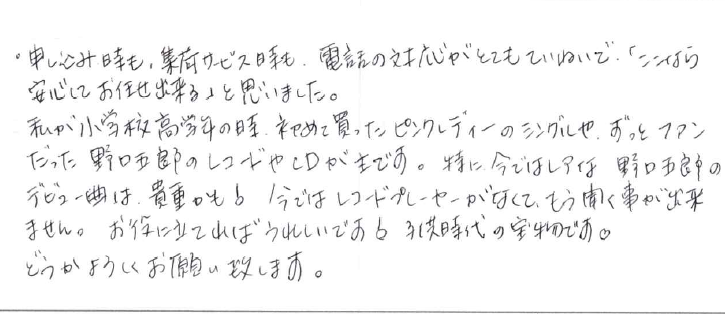 ・申し込み時も、集荷サービス時も、電話の対応がとてもていねいで、「ここなら
安心してお任せ出来る」と思いました。
私が小学校高学年の時、初めて買ったピンクレディーのシングルや、ずっとファン
だった野口五郎のレコードやCDが主です。特に今ではレアな野口五郎の
デビュー曲は、貴重かも♪今ではレコードプレーヤーがなくて、もう聞く事が出来
ません。お役に立てればうれしいです♪子供時代の宝物です。
どうかよろしくお願い致します。